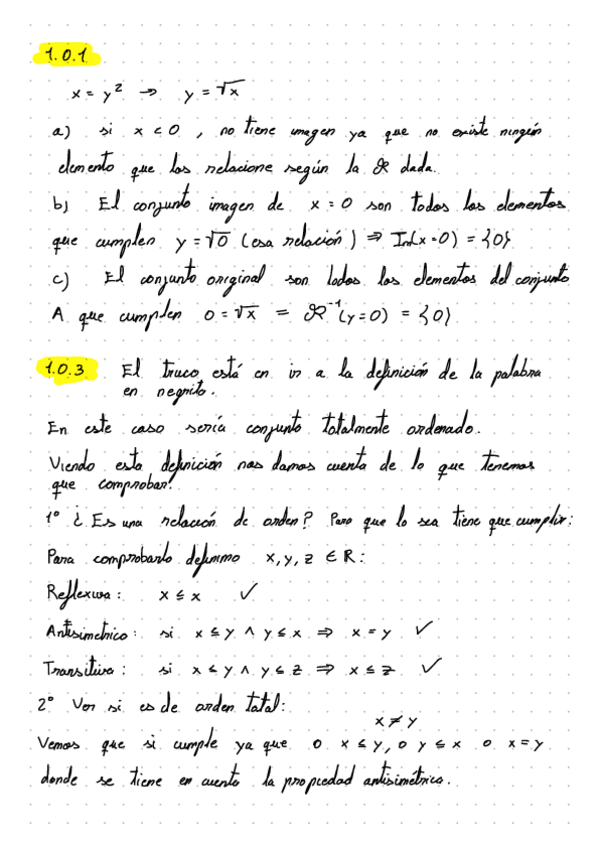 1.0.1
x = y² → y = √x
a) si x < 0, no tiene imagen ya que no existe ningún
elemento que los relacione según la R dada.
b) El conjunto imagen de x = 0 son todos los elementos
que cumplen y = √0 (esa relación) ⇒ Im(x=0) = {0}
c) El conjunto original son todos los elementos del conjunto
A que cumplen 0 = √x = R⁻¹(y=0) = {0}
1.0.3 El truco está en ir a la definición de la palabra
en negrito.
En este caso sería conjunto totalmente ordenado.
Viendo esta definición nos damos cuenta de lo que tenemos
que comprobar:
1º ¿Es una relación de orden? Para que lo sea tiene que cumplir:
Para comprobarlo definimo x, y, z ∈ R:
Reflexiva: x ≤ x ✓
Antisimétrico: si x ≤ y ∧ y ≤ x ⇒ x = y ✓
Transitiva: si x ≤ y ∧ y ≤ z ⇒ x ≤ z ✓
2º Ver si es de orden total:
x ≠ y
Vemos que si cumple ya que o x ≤ y, o y ≤ x o x = y
donde se tiene en cuenta la propiedad antisimétrica.